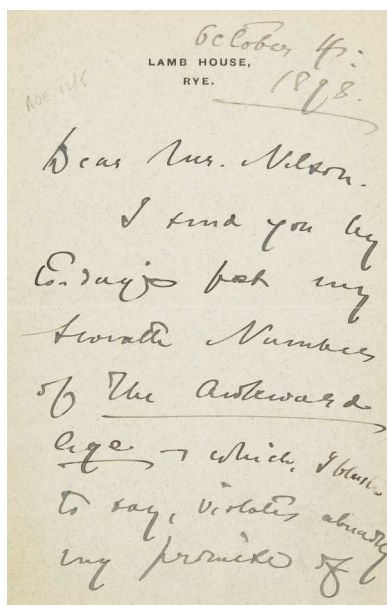 October 4:
LAMB HOUSE,
RYE.
1898.
Dear Mr. Nelson.
I send you by
to-day's post my
Number
of The Awkward
Age – which, I blush
to say, violates
my promise of